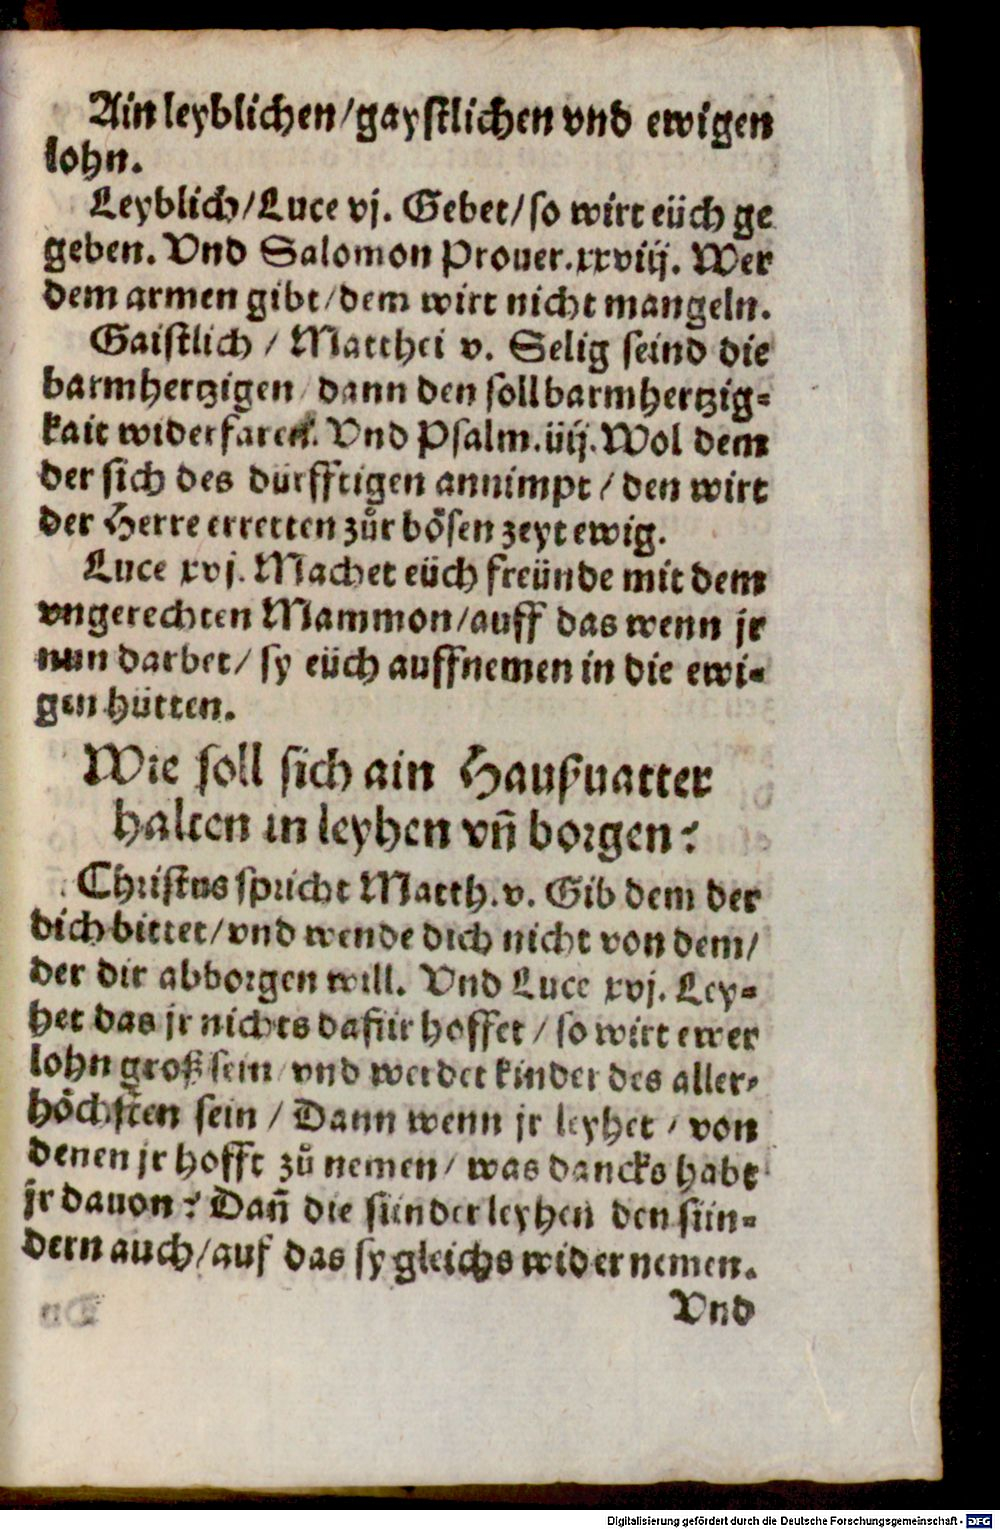 Ain leyblichen/gaystlichen vnd ewigen
lohn.
Leyblich/Luce vj. Gebet/so wirt eüch ge
geben. Vnd Salomon Prouer.xxviij. Wer
dem armen gibt/dem wirt nicht mangeln.
Gaistlich / Matthei v. Selig seind die
barmhertzigen/dann den soll barmhertzig=
kait widerfaren. Vnd Psalm.iiij. Wol dem
der sich des dürfftigen annimpt / den wirt
der Herre erretten zůr bösen zeyt ewig.
Luce xvj. Machet eüch freünde mit dem
vngerechten Mammon/auff das wenn jr
nun darbet/ sy eüch auffnemen in die ewi=
gen hütten.
Wie soll sich ain Haußuatter
halten in leyhen vñ borgen?
Christus spricht Matth.v. Gib dem der
dich bittet/vnd wende dich nicht von dem/
der dir abborgen will. Vnd Luce xvj. Ley=
het das jr nichts dafür hoffet / so wirt ewer
lohn groß sein/vnd werdet kinder des aller=
höchsten sein / Dann wenn jr leyhet / von
denen jr hofft zů nemen/ was dancks habt
jr dauon? Dañ die sünder leyhen den sün=
dern auch/auf das sy gleichs wider nemen.
Vnd
Digitalisierung gefördert durch die Deutsche Forschungsgemeinschaft - DFG